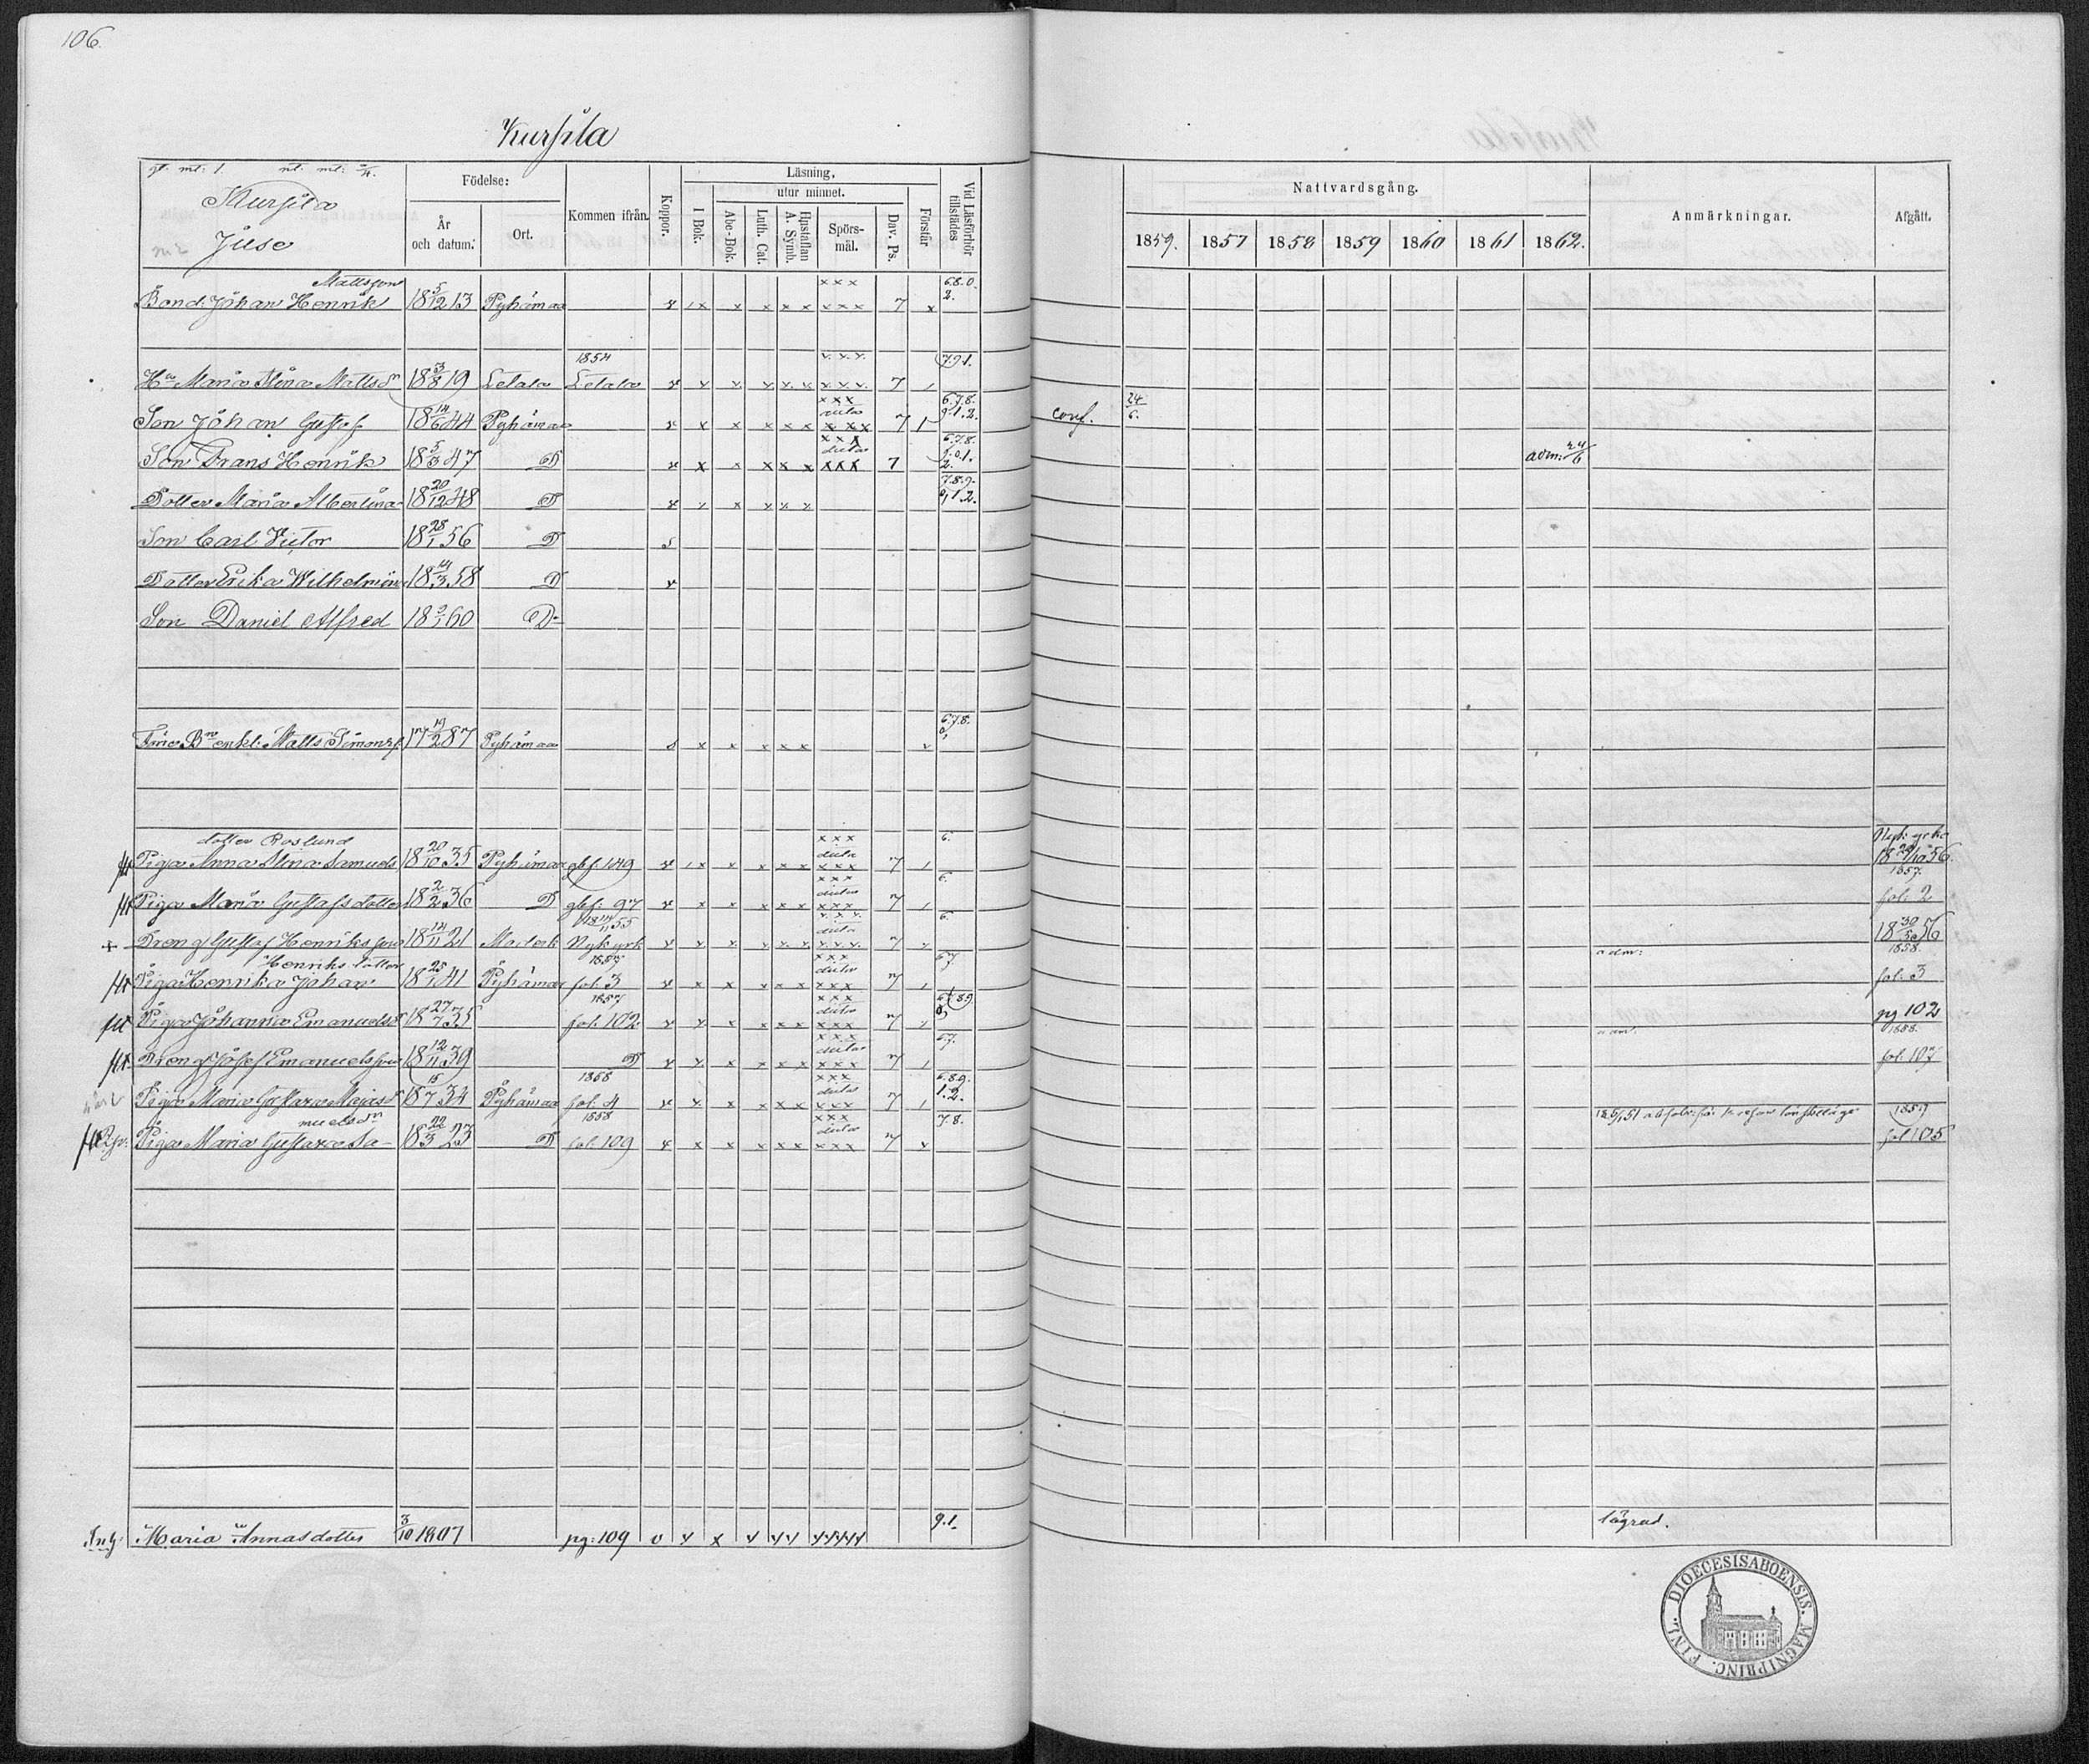 106.
Kursila
gl. ml: 1. nl. ml: 3/4.
Kursila
Juse
Födelse:
År och datum.
Ort.
Kommen ifrån.
Koppor.
Läsning,
I Bok.
utur minnet.
Abc-Bok.
Luth. Cat.
Hustaflan A. Symb.
Spörs-mål.
Dav. Ps.
Förstår
Vid Läsförhör tillstädes
Nattvardsgång.
1859. 1857 1858 1859 1860 1861 1862.
Anmärkningar.
Afgått.
Mattsson 6.8.0.
Bond: Johan Henrik 18 5/12 13 Pyhämaa 7 2.
1854 7.9.1.
Hu Maria Stina Mattsdr 18 3/8 19 Letala Letala 7
Son Johan Gustaf 18 14/6 44 Pyhämaa 7 6.7.8. 9.1.2. conf. 24/6.
Son Frans Henrik 18 5/3 47 D 7 6.7.8. 9.0.1. 2. adm: 24/6
Dotter Maria Albertina 18 20/12 48 D 7.8.9. 0,1.2.
Son Carl Victor 18 28/1 56 D
Dotter Erika Wilhelmina 18 14/3 58 D
Son Daniel Alfred 18 3/1 60 D
6.7.8.
Matts Simonss. 17 19/2 87 Pyhämaa
dotter Roslund 6.
Piga Anna Stina Samuels 18 20/10 35 Pyhämaa 149 7 Nyk: yrka 18 29/10 56.
1857.
Piga Maria Gustafsdotter 18 2/2 36 D 97 7 6. fol: 2
18 14/11 55
Dreng Gustaf Henriksson 18 14/11 21 Nykyrk 7 6. 18 30/5 56
Henriks dotter 1857 6.7. adm: 1858.
Piga Henrika Johan 18 25/1 41 Pyhämaa fol: 3 7 fol: 3
1857
Piga Johanna Emanuelsdr 18 27/7 35 fol: 102 7 pg 102
6.7. adm: 1858.
Dreng Josef Emanuelsson 18 12/11 39 D 7 fol: 107
1858 6.8.9.
Piga Maria Gustava Majasdr 18 15/7 34 Pyhämaa fol: 4 7 1.2.
muelsdr 1858 7.8. 1859
Piga Maria Gustava Sa- 18 22/3 23 D fol: 109 7 fol 105
Inh: Maria Annasdotter 3/10 1807 pg: 109 9.1. lägrad.
DIOECESISABOENSIS. MAGNIPRINC. FINL.